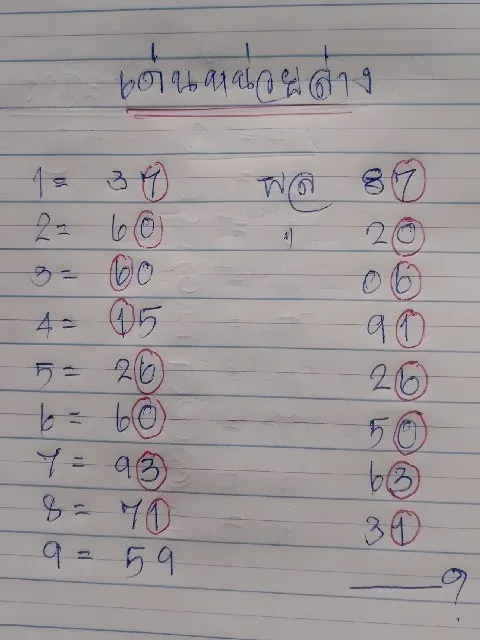 เด่นหน่วยล่าง
1 = 37 ผล 87
2 = 60 " 20
3 = 60 06
4 = 15 91
5 = 26 26
6 = 60 50
7 = 93 63
8 = 71 31
9 = 59